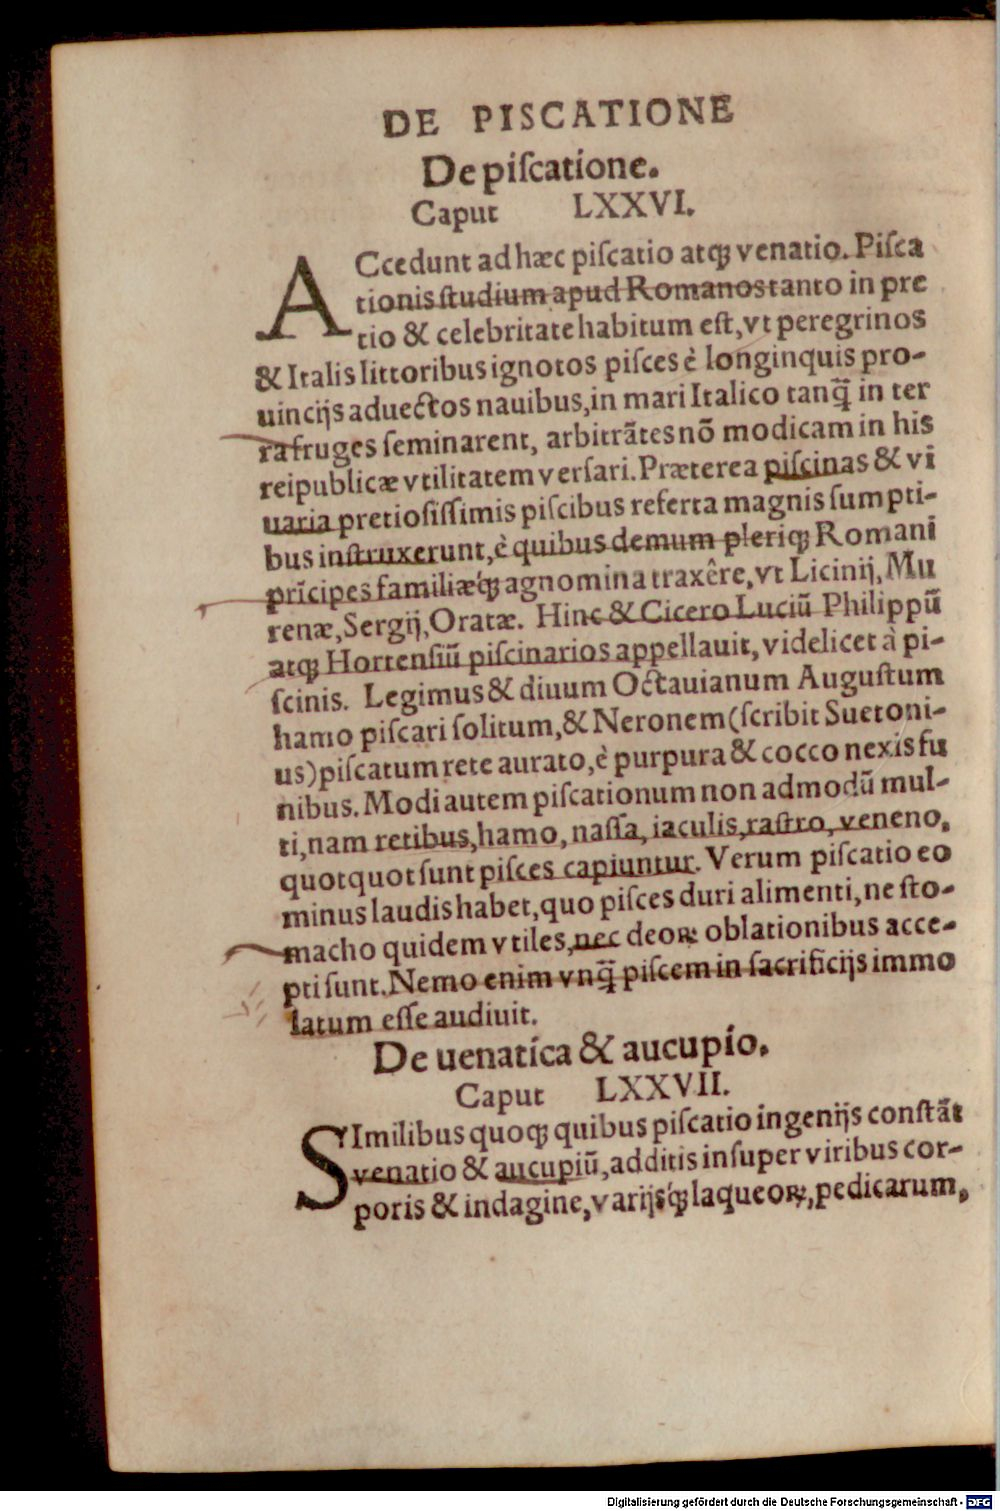 DE PISCATIONE
De piſcatione.
Caput LXXVI.
ACcedunt ad hæc piſcatio atqꝫ venatio. Piſca
tionis ſtudium apud Romanos tanto in pre
tio & celebritate habitum eſt, vt peregrinos
& Italis littoribus ignotos piſces è longinquis pro-
uincijs aduectos nauibus, in mari Italico tanq̃ in ter
ra fruges ſeminarent, arbitrãtes nõ modicam in his
reipublicæ vtilitatem verſari. Præterea piſcinas & vi
uaria pretioſiſſimis piſcibus referta magnis ſumpti-
bus inſtruxerunt, è quibus demum pleriqꝫ Romani
prĩcipes familiæqꝫ agnomina traxêre, vt Licinij, Mu
renæ, Sergij, Oratæ. Hinc & Cicero Luciũ Philippũ
atqꝫ Hortenſiũ piſcinarios appellauit, videlicet à pi-
ſcinis. Legimus & diuum Octauianum Auguſtum
hamo piſcari ſolitum, & Neronem (ſcribit Suetoni-
us) piſcatum rete aurato, è purpura & cocco nexis fu
nibus. Modi autem piſcationum non admodũ mul-
ti, nam retibus, hamo, naſſa, iaculis, raſtro, veneno,
quotquot ſunt piſces capiuntur. Verum piſcatio eo
minus laudis habet, quo piſces duri alimenti, ne ſto-
macho quidem vtiles, nec deoꝝ oblationibus acce-
pti ſunt. Nemo enim vnq̃ piſcem in ſacrificijs immo
latum eſſe audiuit.
De uenatica & aucupio.
Caput LXXVII.
SImilibus quoqꝫ quibus piſcatio ingenijs conſtãt
venatio & aucupiũ, additis inſuper viribus cor-
poris & indagine, varijsqꝫ laqueoꝝ, pedicarum,
Digitalisierung gefördert durch die Deutsche Forschungsgemeinschaft - DFG